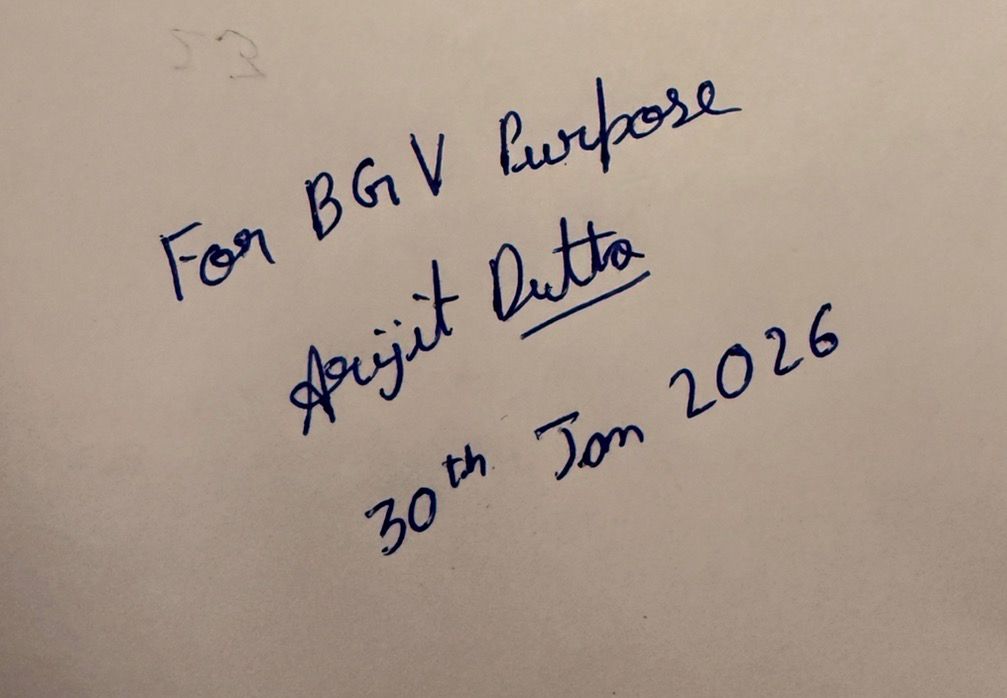 For BGV Purpose
Arijit Dutta
30th Jan 2026